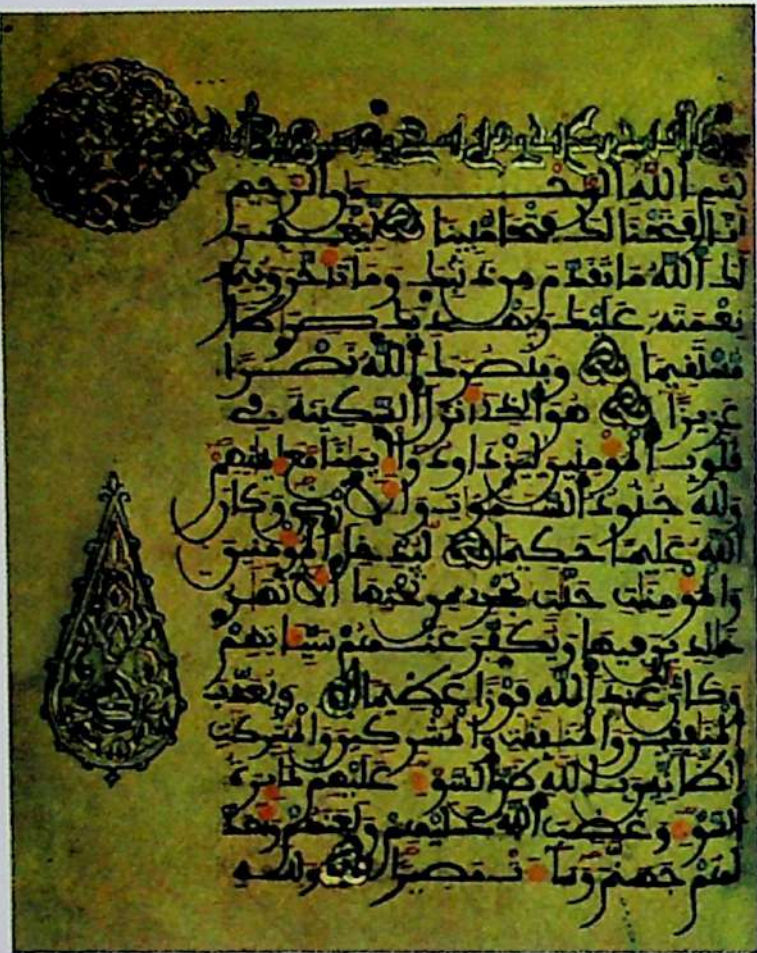 بسم الله الرحمن الرحيم
إنا فتحنا لك فتحا مبينا ليغفر
لك الله ما تقدم من ذنبك وما تأخر ويتم
نعمته عليك ويهديك صراطا
مستقيما وينصرك الله نصرا
عزيزا هو الذي أنزل السكينة في
قلوب المؤمنين ليزدادوا إيمنا مع إيمنهم
ولله جنود السموات والأرض وكان
الله عليما حكيما ليدخل المؤمنين
والمؤمنت جنت تجري من تحتها الأنهر
خلدين فيها ويكفر عنهم سيئاتهم
وكان ذلك عند الله فوزا عظيما ويعذب
المنفقين والمنفقت والمشركين والمشركت
الظانين بالله ظن السوء عليهم دائرة
السوء وغضب الله عليهم ولعنهم وأعد
لهم جهنم وساءت مصيرا ولله